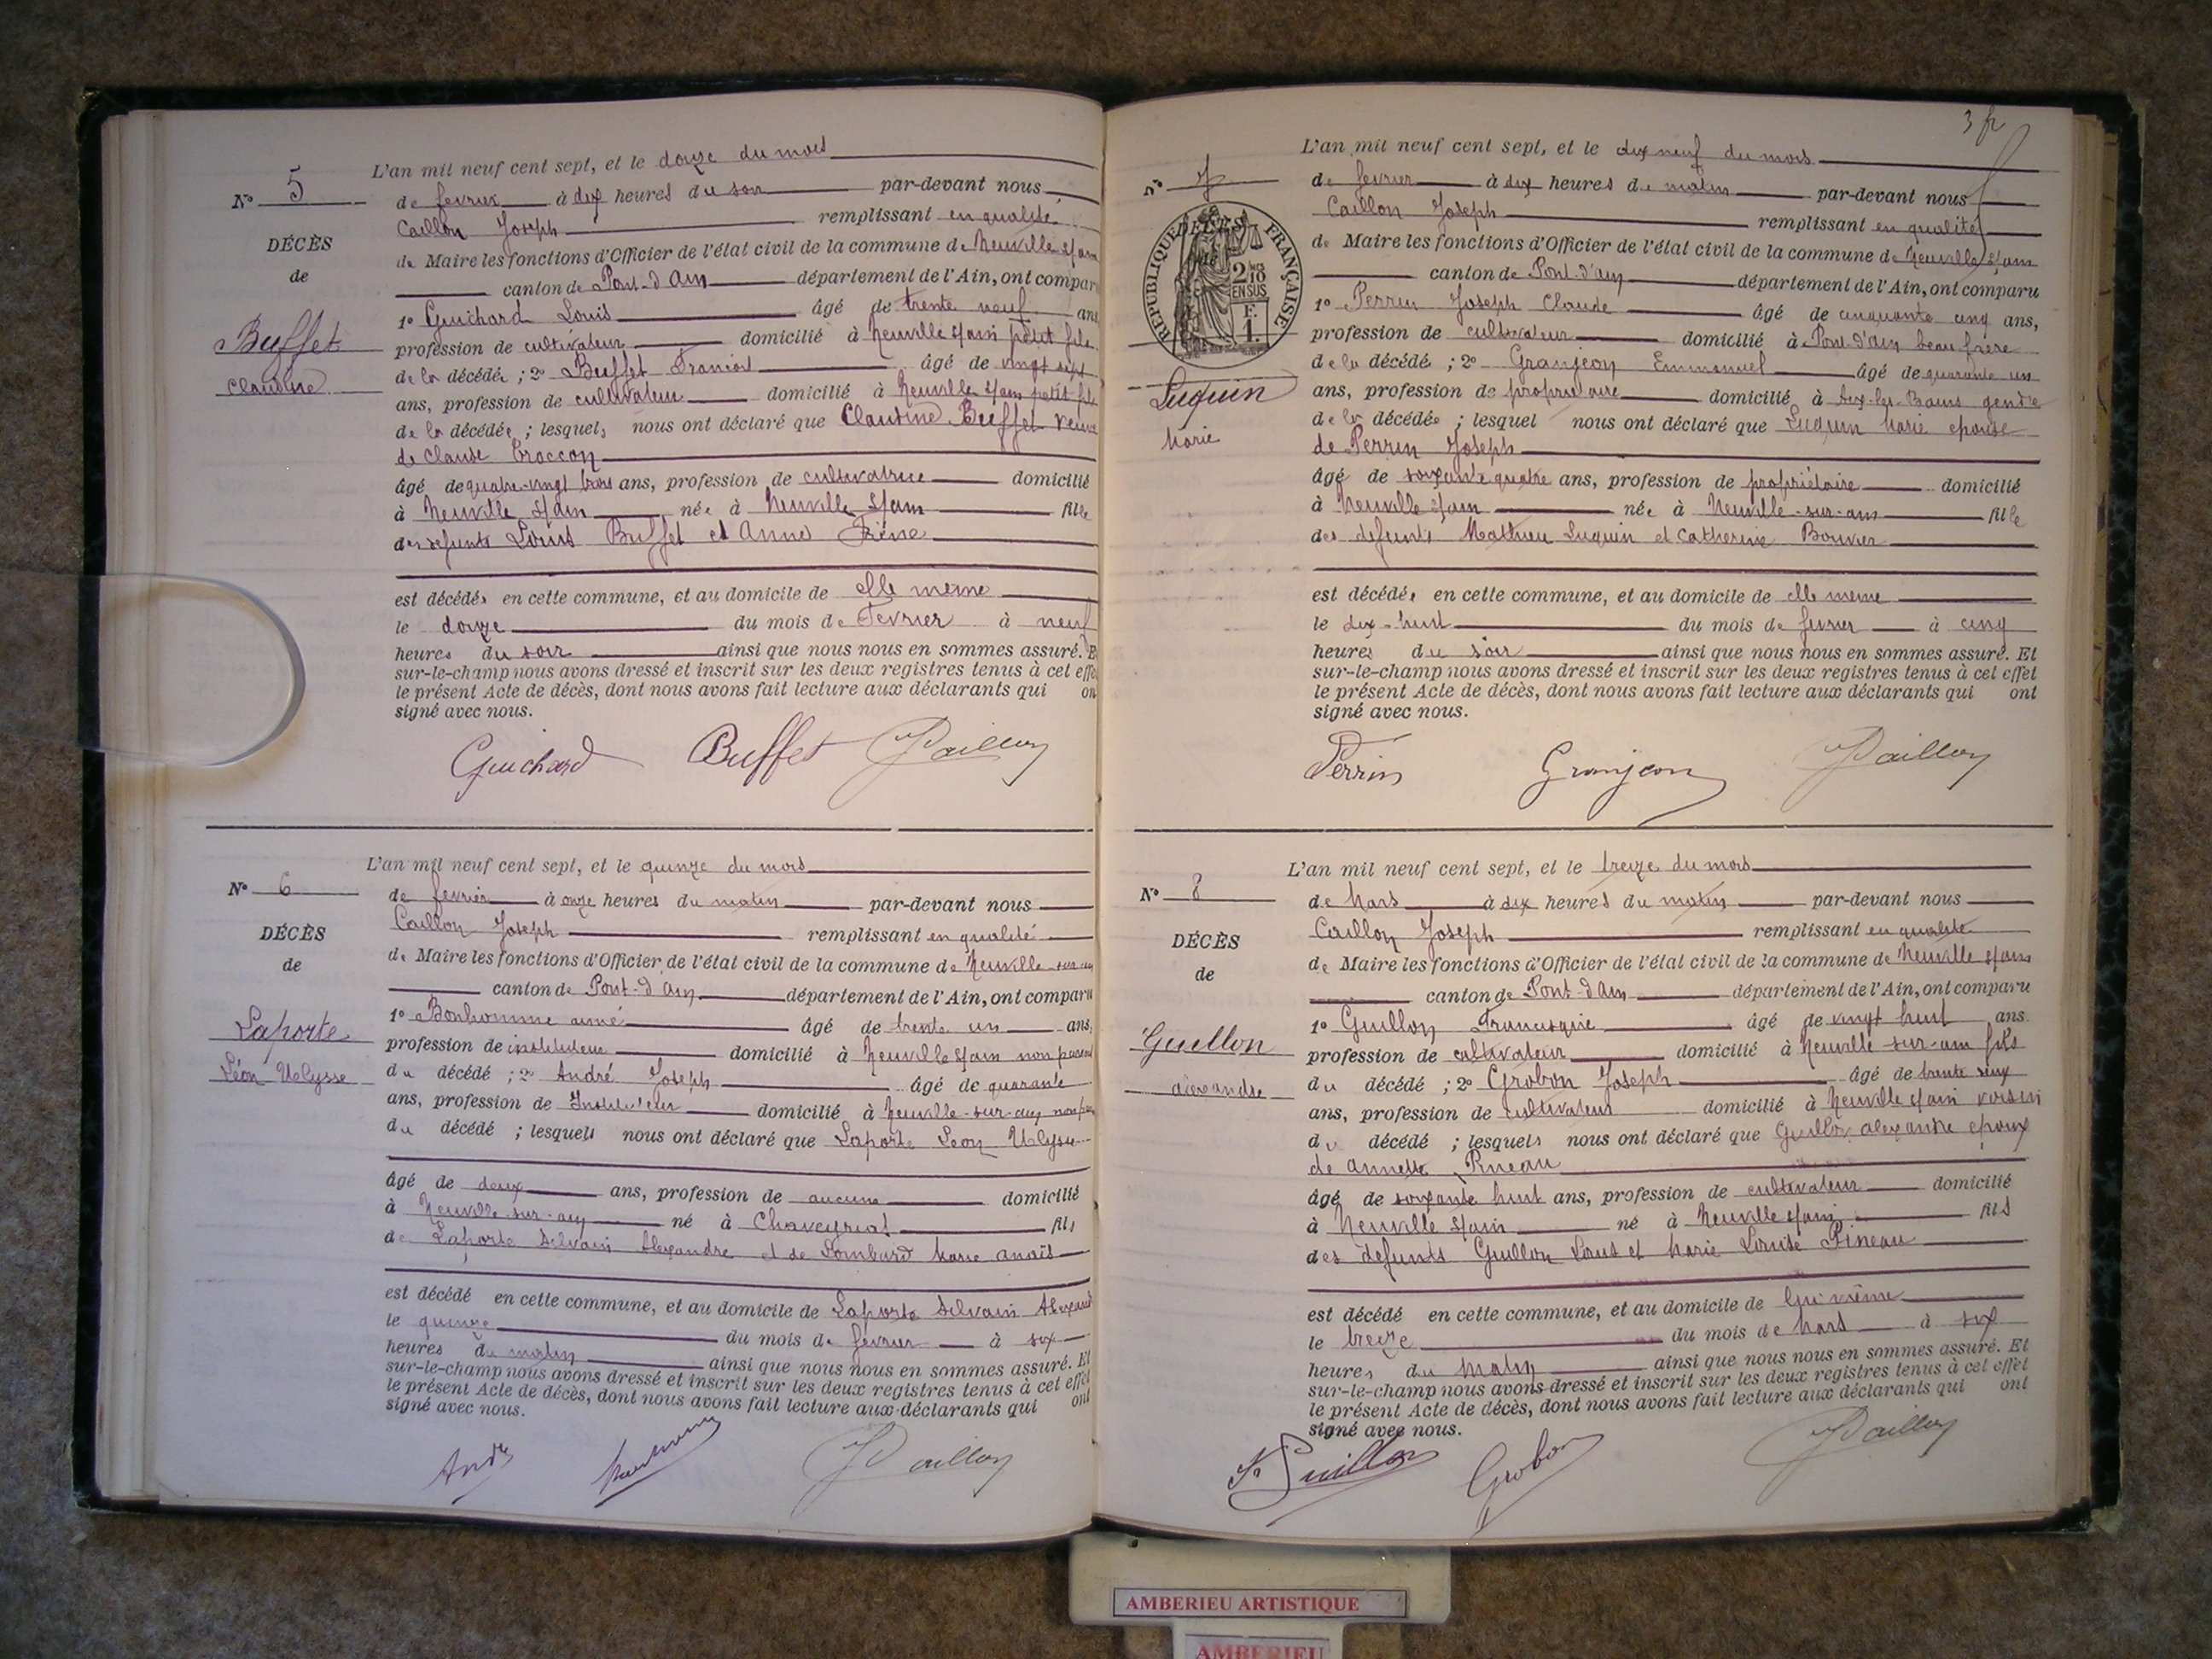 L'an mil neuf cent sept, et le douze du mois
N° 5
de fevrier à dix heures du soir par-devant nous
Caillon Joseph remplissant en qualité
DÉCÈS
de Maire les fonctions d'Officier de l'état civil de la commune de Neuville s/ain
de
canton de Pont-d'Ain département de l'Ain, ont compar
1° Guichard Louis âgé de trente neuf ans
Buffet
profession de cultivateur domicilié à Neuville s/ain petit fils
Claudine
de la décédée ; 2° Buffet François âgé de vingt sept
ans, profession de cultivateur domicilié à Neuville s/ain petit fils
de la décédée ; lesquels nous ont déclaré que Claudine Buffet veuve
de Claude Troccon
âgé de quatre-vingt trois ans, profession de cultivatrice domicilié
à Neuville s/ain née à Neuville s/ain fille
des defunts Louis Buffet et Anne
est décédée en cette commune, et au domicile de elle meme
le douze du mois de Fevrier à neuf
heures du soir ainsi que nous nous en sommes assuré. E
sur-le-champ nous avons dressé et inscrit sur les deux registres tenus à cet effe
le présent Acte de décès, dont nous avons fait lecture aux déclarants qui on
signé avec nous.
Guichard Buffet JCaillon
L'an mil neuf cent sept, et le quinze du mois
N° 6
de fevrier à onze heures du matin par-devant nous
Caillon Joseph remplissant en qualité
DÉCÈS
de Maire les fonctions d'Officier de l'état civil de la commune de Neuville-sur-ain
de
canton de Pont-d'Ain département de l'Ain, ont comparu
1° Bonhomme aimé âgé de trente un ans,
Laporte
profession de instituteur domicilié à Neuville s/ain non parent
Léon Ulysse
du décédé ; 2° André Joseph âgé de quarante
ans, profession de Instituteur domicilié à Neuville-sur-ain
du décédé ; lesquels nous ont déclaré que Laporte Leon Ulysse
âgé de deux ans, profession de aucune domicilié
à Neuville-sur-ain né à Chaveyriat fils
de Laporte Silvain Alexandre et de Lombard Marie anaïs
est décédé en cette commune, et au domicile de Laporte Silvain
le quinze du mois de fevrier à six
heures du matin ainsi que nous nous en sommes assuré. Et
sur-le-champ nous avons dressé et inscrit sur les deux registres tenus à cet effet
le présent Acte de décès, dont nous avons fait lecture aux déclarants qui ont
signé avec nous.
André JCaillon
3
L'an mil neuf cent sept, et le dix neuf du mois
N° 7
de fevrier à dix heures du matin par-devant nous
Caillon Joseph remplissant en qualité
de Maire les fonctions d'Officier de l'état civil de la commune de Neuville s/ain
RÉPUBLIQUE FRANÇAISE
2/10 EN SUS
F. 1.
canton de Pont-d'ain département de l'Ain, ont comparu
1° Perrin Joseph Claude âgé de cinquante cinq ans,
profession de cultivateur domicilié à Pont-d'ain beau frère
de la décédé ; 2° Granjeon Emmanuel âgé de quarante un
Luquin
ans, profession de proprietaire domicilié à Aix-les-Bains gendre
Marie
de la décédée ; lesquel nous ont déclaré que Luquin Marie epouse
de Perrin Joseph
âgé de soixante quatre ans, profession de propriétaire domicilié
à Neuville s/ain née à Neuville-sur-ain fille
des defunts Mathieu Luquin et Catherine Bouvier
est décédée en cette commune, et au domicile de elle meme
le dix-huit du mois de fevrier à cinq
heures du soir ainsi que nous nous en sommes assuré. Et
sur-le-champ nous avons dressé et inscrit sur les deux registres tenus à cet effet
le présent Acte de décès, dont nous avons fait lecture aux déclarants qui ont
signé avec nous.
Perrin Granjeon JCaillon
L'an mil neuf cent sept, et le treize du mois
N° 8
de Mars à dix heures du matin par-devant nous
Caillon Joseph remplissant en qualité
DÉCÈS
de Maire les fonctions d'Officier de l'état civil de la commune de Neuville s/ain
de
canton de Pont-d'Ain département de l'Ain, ont comparu
1° Guillon Francisque âgé de vingt huit ans
Guillon
profession de cultivateur domicilié à Neuville-sur-ain fils
alexandre
du décédé ; 2° Grobon Joseph âgé de trente deux
ans, profession de cultivateur domicilié à Neuville s/ain voisin
du décédé ; lesquels nous ont déclaré que Guillon alexandre epoux
de annette Pineau
âgé de soixante huit ans, profession de cultivateur domicilié
à Neuville s/ain né à Neuville s/ain fils
des defunts Guillon Louis et Marie Louise Pineau
est décédé en cette commune, et au domicile de lui meme
le treize du mois de Mars à six
heures du matin ainsi que nous nous en sommes assuré. Et
sur-le-champ nous avons dressé et inscrit sur les deux registres tenus à cet effet
le présent Acte de décès, dont nous avons fait lecture aux déclarants qui ont
signé avec nous.
F. Guillon Grobon JCaillon
AMBERIEU ARTISTIQUE
AMBERIEU